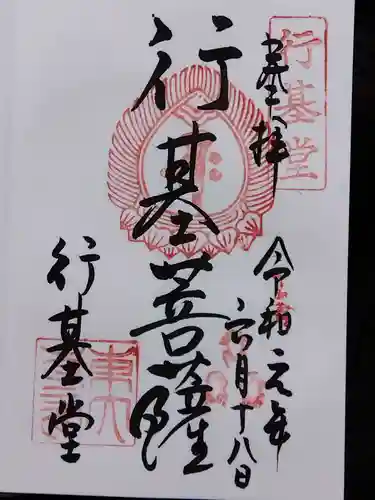 行基堂
奉拝
令和元年
六月十八日
行基菩薩
行基堂